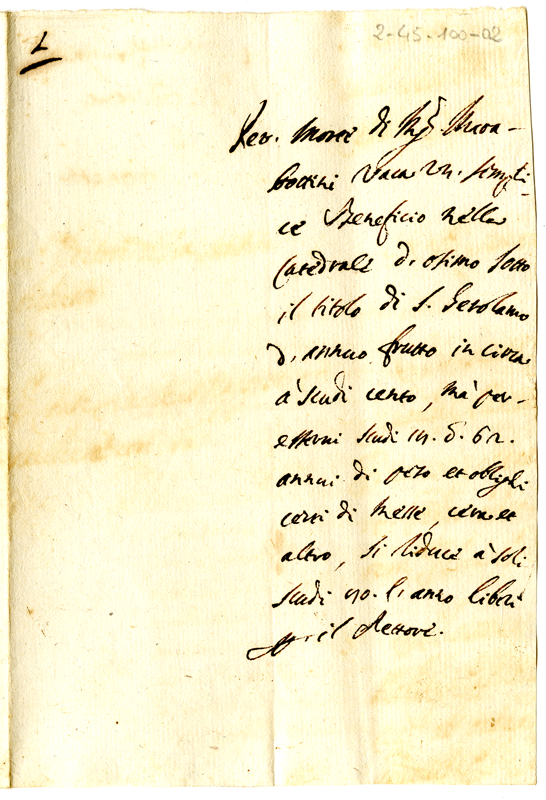 2-45-100-02
1
Per morte di Mgr. Mara-
bottini vaca un sempli-
ce Beneficio nella
Catedrale d'osimo sotto
il titolo di S. Gerolamo
d'annuo frutto in circa
à scudi cento, mà per-
esservi scudi
annui di peso et oblighi
certi di Messe, cera et
altro, si riduce à soli
scudi l'anno liberi
per il Rettore.